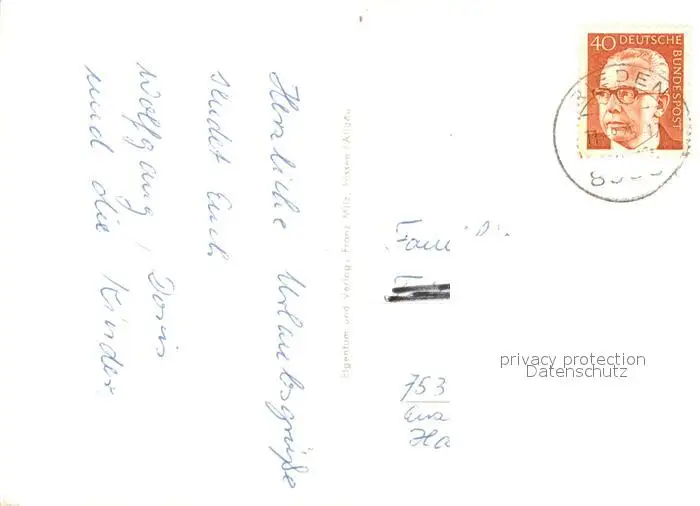 Herzliche Urlaubsgrüße
sendet Euch
Wolfgang, Doris
und die Kinder
Eigentum und Verlag: Franz Milz,
40 DEUTSCHE
BUNDESPOST
Fam
753
Ha
privacy protection
Datenschutz